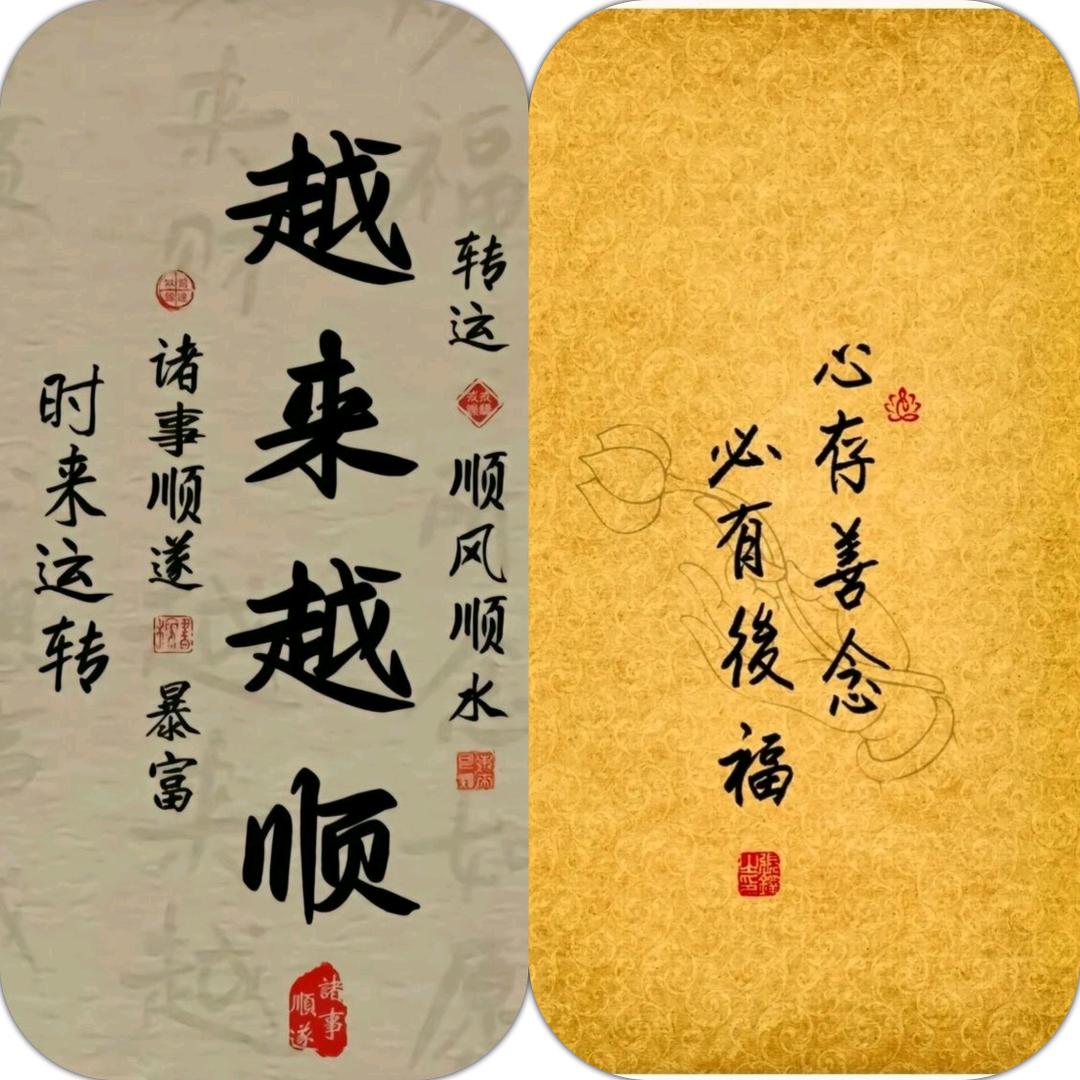 转运 顺风顺水
越来越顺
諸事順遂
诸事顺遂 暴富
时来运转
心存善念
必有後福